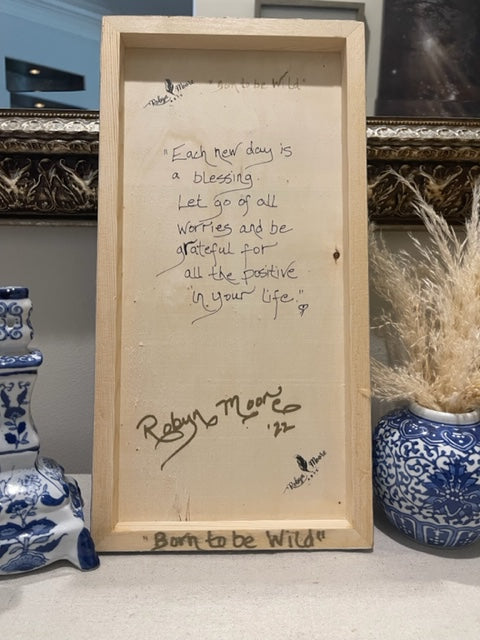 Robyn Moore "Born to be Wild"
"Each new day is
a blessing.
Let go of all
worries and be
grateful for
all the positive
in your life."
Robyn Moore
'22
Robyn Moore
"Born to be Wild"